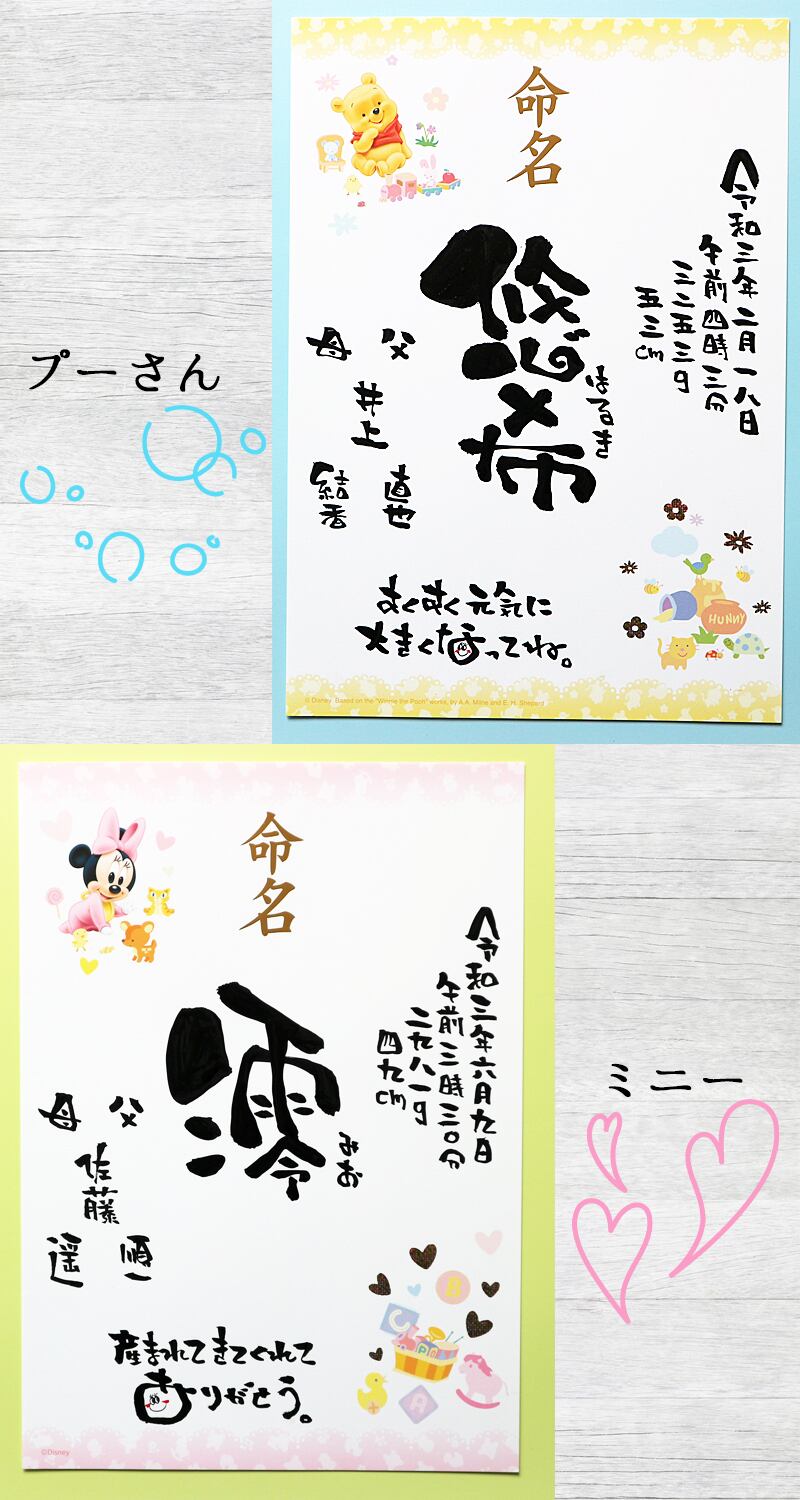 命名
令和三年二月一八日
午前四時三分
三二五三g
五三cm
悠希
はるき
父
母
井上
直也
結香
すくすく元気に
大きくなってね。
HUNNY
© Disney Based on the "Winnie the Pooh" works, by A.A. Milne and E. H. Shepard
プーさん
命名
令和三年六月九日
午前三時三〇分
二九八一g
四九cm
澪
みお
父
母
佐藤
順一
遥
産まれてきてくれて
ありがとう。
B
C
A
©Disney
ミニー